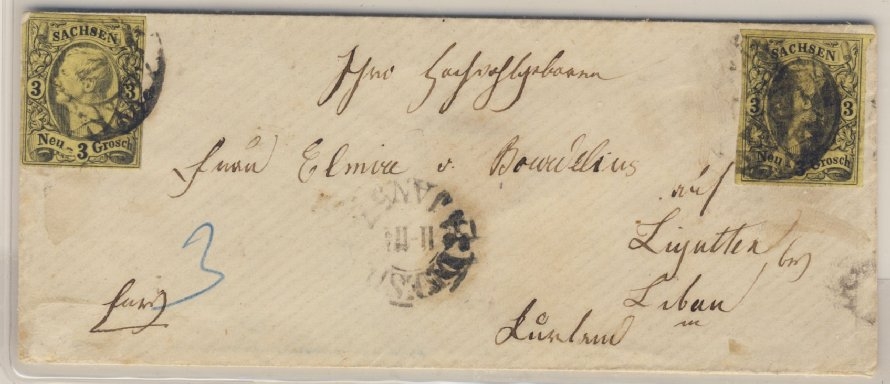 SACHSEN
3 3
Neu-3 Grosch
SACHSEN
3 3
Neu-3 Grosch
Ihro Hochwohlgeboren
Frau Elmire v. Bourdelius
auf
Ligutten bei
Libau
in
Kurland
franco
3
III-II